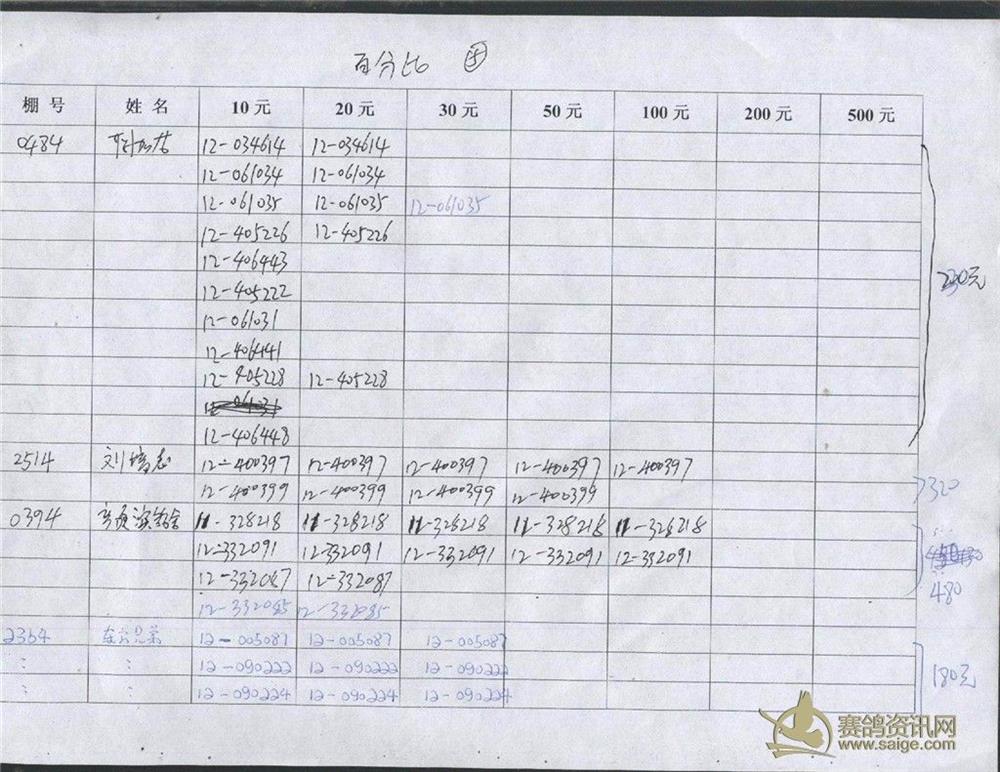 百分比
棚号 姓名 10元 20元 30元 50元 100元 200元 500元
0484 12-034614 12-034614
12-061034 12-061034
12-061035 12-061035 12-061035
12-405226 12-405226
12-406443
12-405222
12-061031
12-406441
12-405228 12-405228
12-061031
12-406448
230元
2514 刘培志 12-400397 12-400397 12-400397 12-400397 12-400397
12-400399 12-400399 12-400399 12-400399
320
0394 11-328218 11-328218 11-328218 11-328218 11-328218
12-332091 12-332091 12-332091 12-332091 12-332091
12-332087 12-332087
12-332085 12-332085
480
2364 兄弟 12-005087 12-005087 12-005087
: : 12-090222 12-090222 12-090222
: : 12-090224 12-090224 12-090224
180元
赛鸽资讯网
www.saige.com